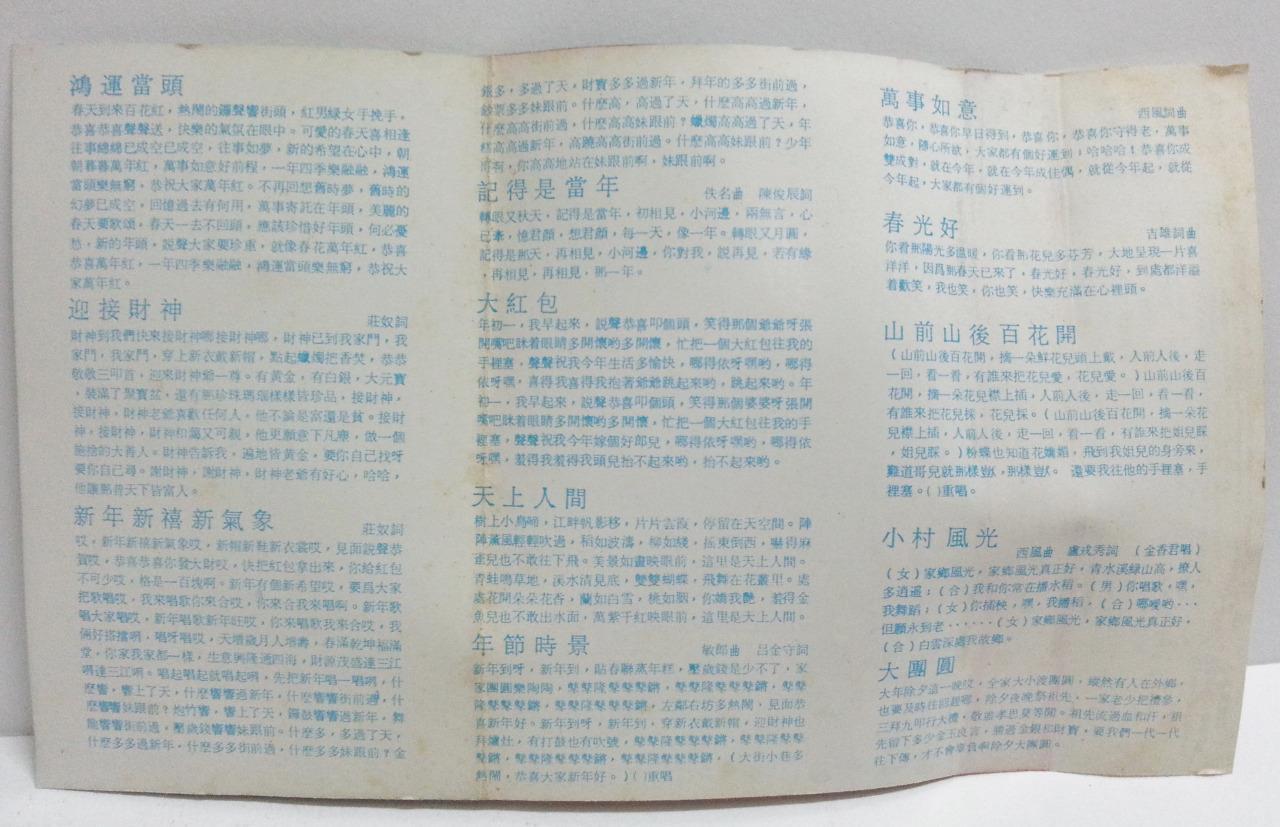 鴻運當頭
春天到來百花紅，熱鬧的鑼聲響街頭，紅男綠女手挽手，
恭喜恭喜聲聲送，快樂的氣氛在眼中。可愛的春天喜相逢
往事總總已成空已成空，往事如夢，新的希望在心中，朝
朝暮暮萬年紅，萬事如意好前程，一年四季樂融融，鴻運
當頭樂無窮，恭祝大家萬年紅。不再回想舊時夢，舊時的
幻夢已成空，回憶過去有何用，萬事寄託在年頭，美麗的
春天要歌頌，春天一去不回頭，應該珍惜好年頭，何必憂
愁，新的年頭，説聲大家要珍重，就像春花萬年紅，恭喜
恭喜萬年紅，一年四季樂融融，鴻運當頭樂無窮，恭祝大
家萬年紅。
迎接財神
莊奴詞
財神到我們快來接財神啷接財神啷，財神已到我家門，我
家門，我家門，穿上新衣戴新帽，點起蠟燭把香焚，恭恭
敬敬三叩首，迎來財神爺一尊。有黃金，有白銀，大元寶
，裝滿了聚寶盆，還有那珍珠瑪瑙樣樣皆珍品，接財神，
接財神，財神老爺喜歡任何人。他不論是富還是貧。接財
神，接財神，財神和藹又可親，他更願意下凡塵，做一個
施捨的大善人。財神告訴我，遍地皆黃金，要你自己找呀
要你自己尋。謝財神，謝財神，財神老爺有好心，哈哈，
他讓那普天下皆富人。
新年新禧新氣象
莊奴詞
哎，新年新禧新氣象哎，新帽新鞋新衣裳哎，見面説聲恭
賀哎，恭喜恭喜你發大財哎，快把紅包拿出來，你給紅包
不可少哎，格是一百塊啊。新年有個新希望哎，要爲大家
把歌唱哎，我來唱歌你來合哎，你來合我來唱啊。新年歌
唱大家唱哎，新年唱歌新年旺哎，你來唱歌我來合哎，我
倆好搭擋啊，唱呀唱哎，天增歲月人增壽，春滿乾坤福滿
堂，你家我家都一樣，生意興隆通四海，財源茂盛達三江
啊達三江啊。唱起唱起就唱起啊，先把新年唱一唱啊，什
麼響，響上了天，什麼響響過新年，什麼響響街前過，什
麼響響妹跟前？炮竹響，響上了天，鑼鼓響響過新年，舞
龍響響街前過，壓歲錢響響妹跟前。什麼多，多過了天，
什麼多多過新年，什麼多多街前過，什麼多多妹跟前？金
銀多，多過了天，財寶多多過新年，拜年的多多街前過，
鈔票多多妹跟前。什麼高，高過了天，什麼高高過新年，
什麼高高街前過，什麼高高妹跟前？蠟燭高高過了天，年
糕高高過新年，高蹺高高街前過。什麼高高妹跟前？少年
哥啊，你高高地站在妹跟前啊，妹跟前啊。
記得是當年
佚名曲　陳俊辰詞
轉眼又秋天，記得是當年，初相見，小河邊，兩無言，心
已牽，憶君顏，想君顏，每一天，像一年。轉眼又月圓，
記得是那天，再相見，小河邊，你對我，説再見，若有緣
，再相見，再相見，那一年。
大紅包
年初一，我早起來，説聲恭喜叩個頭，笑得那個爺爺呀張
開嘴吧眯着眼睛多開懷喲多開懷，忙把一個大紅包往我的
手裡塞，聲聲祝我今年生活多愉快，啷得依呀嘿喲，啷得
依呀嘿，喜得我喜得我抱着爺爺跳起來喲，跳起來喲。年
初一，我早起來，説聲恭喜叩個頭，笑得那個婆婆呀張開
嘴吧眯着眼睛多開懷喲多開懷，忙把一個大紅包往我的手
裡塞，聲聲祝我今年嫁個好郎兒，啷得依呀嘿喲，啷得依
呀嘿，羞得我羞得我頭兒抬不起來喲，抬不起來喲。
天上人間
樹上小鳥啼，江畔帆影移，片片雲霞，停留在天空間。陣
陣薰風輕輕吹過，稻如波濤，柳如綫，搖東倒西，嚇得麻
雀兒也不敢往下飛。美景如畫映眼前，這里是天上人間。
青蛙鳴草地，溪水清見底，雙雙蝴蝶，飛舞在花叢里。處
處花開朵朵花香，蘭如白雪，桃如胭，你嬌我艷，羞得金
魚兒也不敢出水面，萬紫千紅映眼前，這里是天上人間。
年節時景
敏郎曲　呂金守詞
新年到呀，新年到，貼春聯蒸年糕，壓歲錢是少不了，家
家團圓樂陶陶，鼕鼕隆鼕鼕鼕鏘，鼕鼕隆鼕鼕鼕鏘，鼕鼕
隆鼕鼕鼕鏘，鼕鼕隆鼕鼕鼕鏘，左鄰右坊多熱鬧，見面恭
喜新年好。新年到呀，新年到，穿新衣戴新帽，迎財神也
拜爐灶，有打鼓也有吹號，鼕鼕隆鼕鼕鼕鏘，鼕鼕隆鼕鼕
鼕鏘，鼕鼕隆鼕鼕鼕鏘，鼕鼕隆鼕鼕鼕鏘，（大街小巷多
熱鬧，恭喜大家新年好。）（）重唱
萬事如意
西風詞曲
恭喜你，恭喜你早日得到，恭喜你，恭喜你守得老，萬事
如意，隨心所欲，大家都有個好運到；哈哈哈！恭喜你成
雙成對，就在今年，就在今年成佳偶，就從今年起，就從
今年起，大家都有個好運到。
春光好
吉雄詞曲
你看那陽光多温暖，你看那花兒多芬芳，大地呈現一片喜
洋洋，因爲那春天已來了，春光好，春光好，到處都洋溢
着歡笑，我也笑，你也笑，快樂充滿在心裡頭。
山前山後百花開
（山前山後百花開，摘一朵鮮花兒頭上戴，人前人後，走
一回，看一看，有誰來把花兒愛，花兒愛。）山前山後百
花開，摘一朵花兒襟上插，人前人後，走一回，看一看，
有誰來把花兒採，花兒採。（山前山後百花開，摘一朵花
兒襟上插，人前人後，走一回，看一看，有誰來把姐兒睬
，姐兒睬。）粉蝶也知道花嬌媚，飛到我姐兒的身旁來，
難道哥兒就那樣獃，那樣獃。還要我往他的手裡塞，手
裡塞。（）重唱。
小村風光
西風曲　盧戎秀詞　（金香君唱）
（女）家鄉風光，家鄉風光真正好，青水溪綠山高，撩人
多逍遙；（合）我和你常在播水稻。（男）你唱歌，嘿，
我舞蹈；（女）你插秧，嘿，我播稻，（合）啷噯喲⋯
但願永到老⋯⋯（女）家鄉風光，家鄉風光真正好，
（合）白雲深處我故鄉。
大團圓
大年除夕這一晚哎，全家大小渡團圓，縱然有人在外鄉，
也要及時往回趕啷，除夕夜晚祭祖先，一家老少把禮參，
三拜九叩行大禮，敬重孝思莫等閒。祖先流過血和汗，祖
先留下多少金玉良言，勝過金銀和財寶，要我們一代一代
往下傳，才不會辜負啊除夕大團圓。